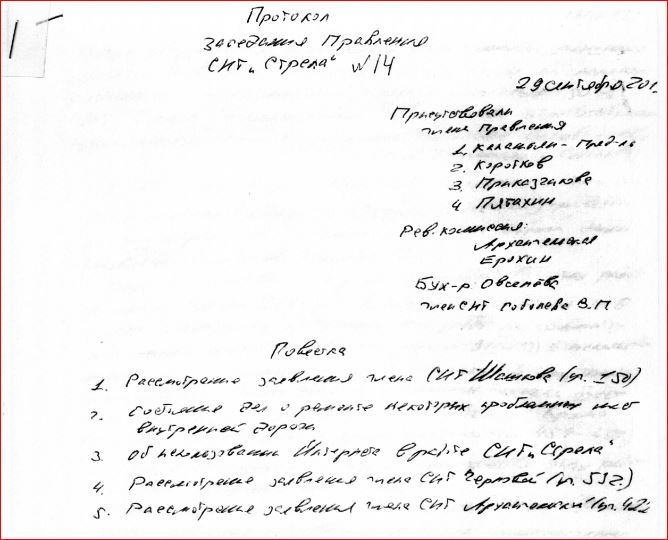 Протокол
заседания Правления
СНТ „Стрела" N 14
29 сентября 201
Присутствовали
члены Правления
1. Каланьян - Пред-ль
2. Коротков
3. Приказчикова
4 Пятахин
Рев. комиссия:
Архангельская
Ерохин
Бух-р. Овсепова
член СНТ Соболева В. П
Повестка
1. Рассмотрение заявления члена СНТ Шашкова (уч. 150)
2. Состояние дел о ремонте некоторых проблемных мест
внутренней дороги
3. Об использовании Интернета в работе СНТ „Стрела"
4. Рассмотрение заявления члена СНТ (уч. 532)
5. Рассмотрение заявления члена СНТ Архангельской (уч. 42